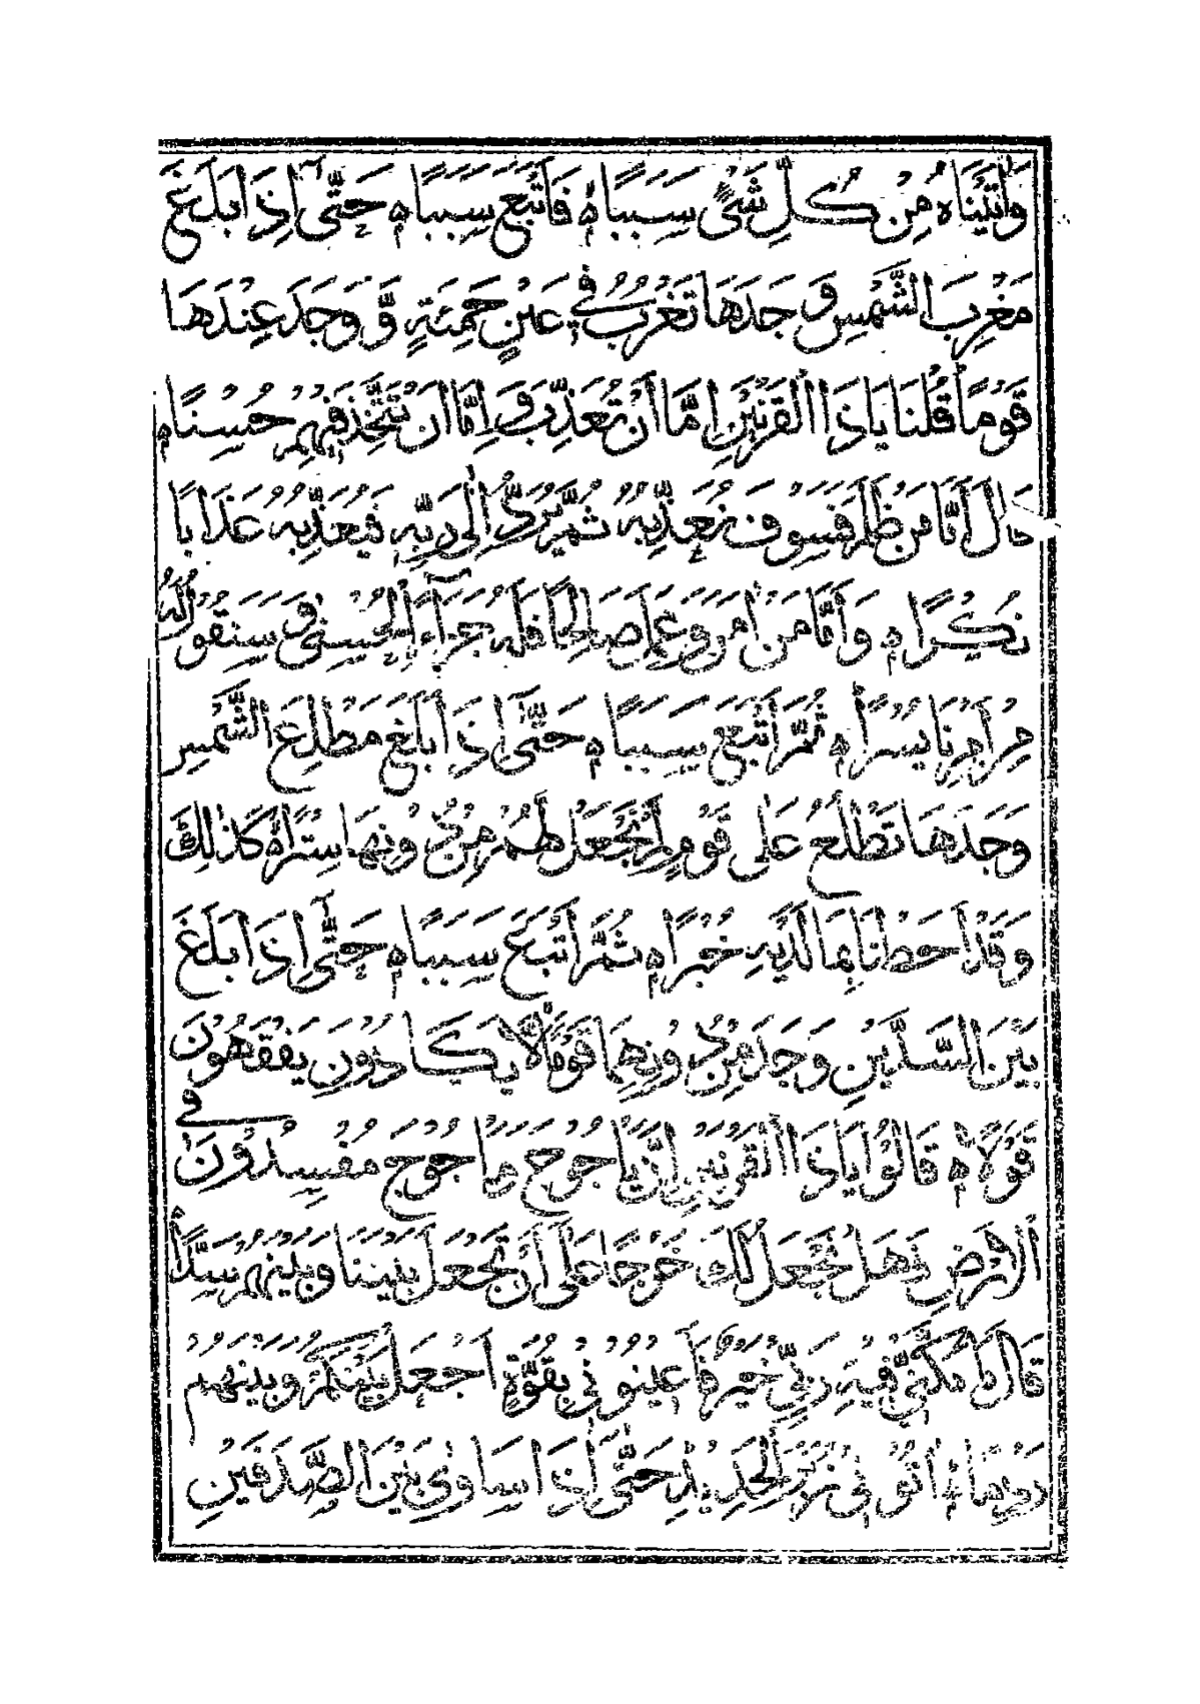 وَاٰتَيْنَاهُ مِنْ كُلِّ شَيْءٍ سَبَبًا ۙ فَاَتْبَعَ سَبَبًا ۙ حَتّٰٓى اِذَا بَلَغَ
مَغْرِبَ الشَّمْسِ وَجَدَهَا تَغْرُبُ فِيْ عَيْنٍ حَمِئَةٍ وَّ وَجَدَ عِنْدَهَا
قَوْمًا قُلْنَا يَا ذَا الْقَرْنَيْنِ اِمَّا اَنْ تُعَذِّبَ وَ اِمَّا اَنْ تَتَّخِذَ فِيْهِمْ حُسْنًا ۙ
قَالَ اَمَّا مَنْ ظَلَمَ فَسَوْفَ نُعَذِّبُهُ ثُمَّ يُرَدُّ اِلٰى رَبِّهٖ فَيُعَذِّبُهُ عَذَابًا
نُكْرًا ۙ وَ اَمَّا مَنْ اٰمَنَ وَعَمِلَ صَالِحًا فَلَهُ جَزَآءَ الْحُسْنٰى وَ سَنَقُوْلُ لَهُ
مِنْ اَمْرِنَا يُسْرًا ۙ ثُمَّ اَتْبَعَ سَبَبًا ۙ حَتّٰٓى اِذَا بَلَغَ مَطْلِعَ الشَّمْسِ
وَجَدَهَا تَطْلُعُ عَلٰى قَوْمٍ لَمْ نَجْعَلْ لَهُمْ مِنْ دُوْنِهَا سِتْرًا ۙ كَذٰلِكَ
وَقَدْ اَحَطْنَا بِمَا لَدَيْهِ خُبْرًا ۙ ثُمَّ اَتْبَعَ سَبَبًا ۙ حَتّٰٓى اِذَا بَلَغَ
بَيْنَ السَّدَّيْنِ وَجَدَ مِنْ دُوْنِهِمَا قَوْمًا لَا يَكَادُوْنَ يَفْقَهُوْنَ
قَوْلًا ۙ قَالُوْا يَا ذَا الْقَرْنَيْنِ اِنَّ يَاْجُوْجَ وَ مَاْجُوْجَ مُفْسِدُوْنَ فِي
الْاَرْضِ فَهَلْ نَجْعَلُ لَكَ خَرْجًا عَلٰٓى اَنْ تَجْعَلَ بَيْنَنَا وَبَيْنَهُمْ سَدًّا
قَالَ مَا مَكَّنِّيْ فِيْهِ رَبِّيْ خَيْرٌ فَاَعِيْنُوْنِيْ بِقُوَّةٍ اَجْعَلْ بَيْنَكُمْ وَبَيْنَهُمْ
رَدْمًا ۙ اٰتُوْنِيْ زُبَرَ الْحَدِيْدِ حَتّٰٓى اِذَا سَاوٰى بَيْنَ الصَّدَفَيْنِ